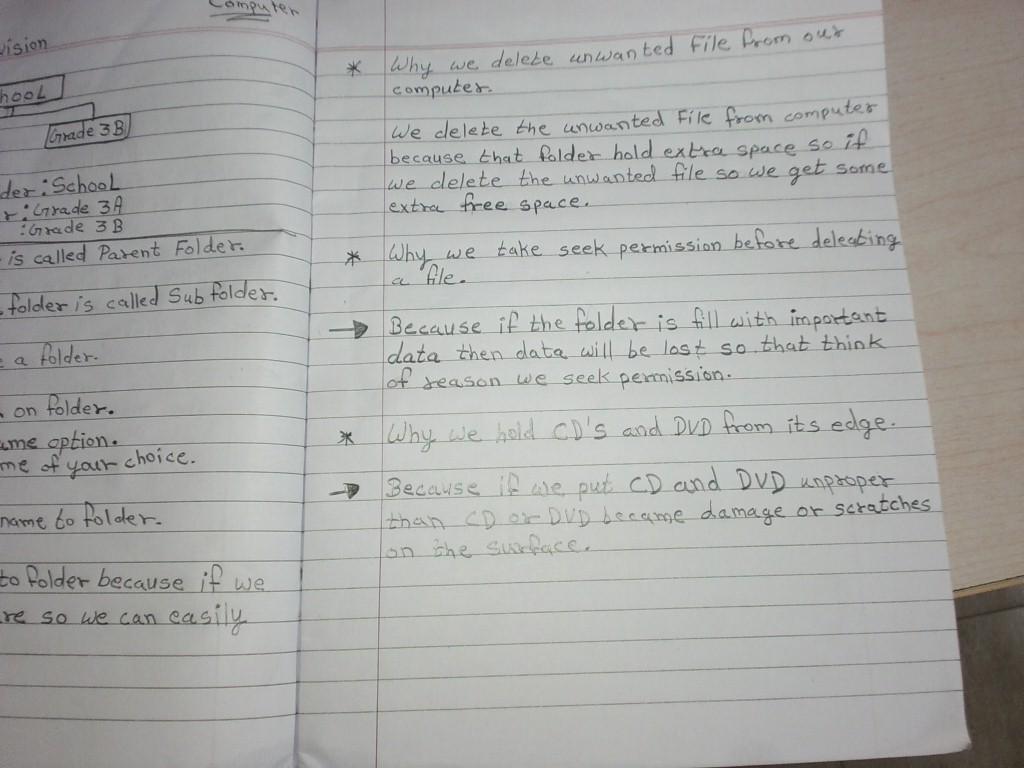 Computer
vision
hool
Grade 3B
der : School
r : Grade 3A
: Grade 3B
is called Parent Folder.
folder is called Sub folder.
a folder.
on folder.
ame option.
me of your choice.
name to folder.
to folder because if we
re so we can easily
* Why we delete unwanted file from our
computer.
We delete the unwanted file from computer
because that folder hold extra space so if
we delete the unwanted file so we get some
extra free space.
* Why we take seek permission before deleating
a file.
→ Because if the folder is fill with important
data then data will be lost so that think
of reason we seek permission.
* Why we hold CD's and DVD from its edge.
→ Because if we put CD and DVD unproper
than CD or DVD became damage or scratches
on the surface.